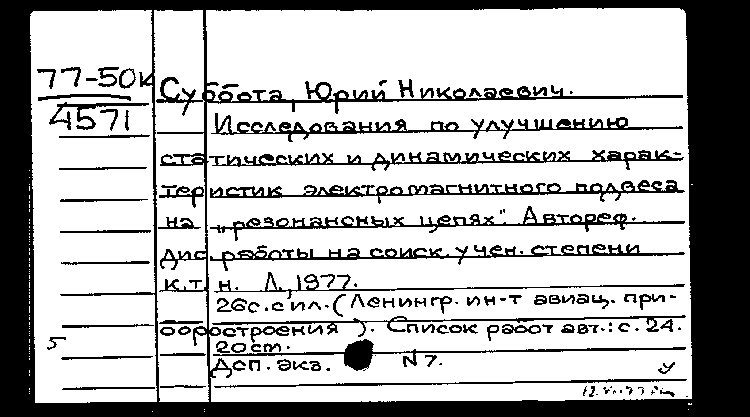 77-50к
4571
Суббота, Юрий Николаевич.
Исследования по улучшению
статических и динамических харак-
теристик электромагнитного подвеса
на „резонансных цепях". Автореф.
дис. работы на соиск. учен. степени
к.т.н. Л., 1977.
26с. с ил. (Ленингр. ин-т авиац. при-
боростроения). Список работ авт.: с. 24.
20см.
Дсп. экз. N7.
5
У